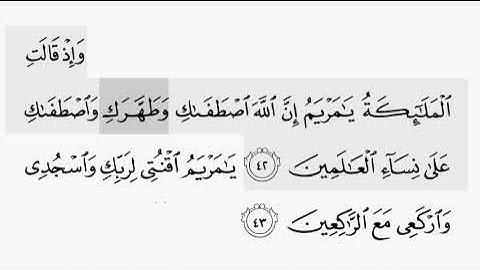 وَإِذْ قَالَتِ
ٱلْمَلَـٰٓئِكَةُ يَـٰمَرْيَمُ إِنَّ ٱللَّهَ ٱصْطَفَىٰكِ وَطَهَّرَكِ وَٱصْطَفَىٰكِ
عَلَىٰ نِسَآءِ ٱلْعَـٰلَمِينَ ٤٢ يَـٰمَرْيَمُ ٱقْنُتِى لِرَبِّكِ وَٱسْجُدِى
وَٱرْكَعِى مَعَ ٱلرَّٰكِعِينَ ٤٣